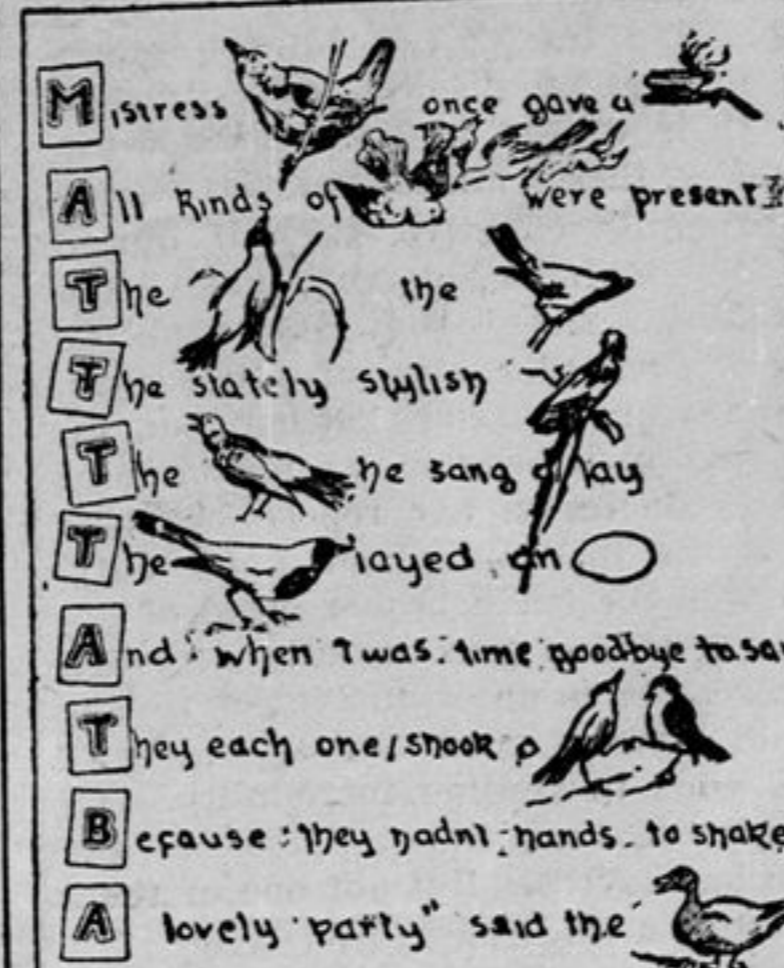 Mistress once gave a
All Kinds of were present
The the
The stately stylish
The he sang a lay
The layed an
And when Twas time goodbye to say
They each one shook
Because they hadnt hands to shake
A lovely party" said the